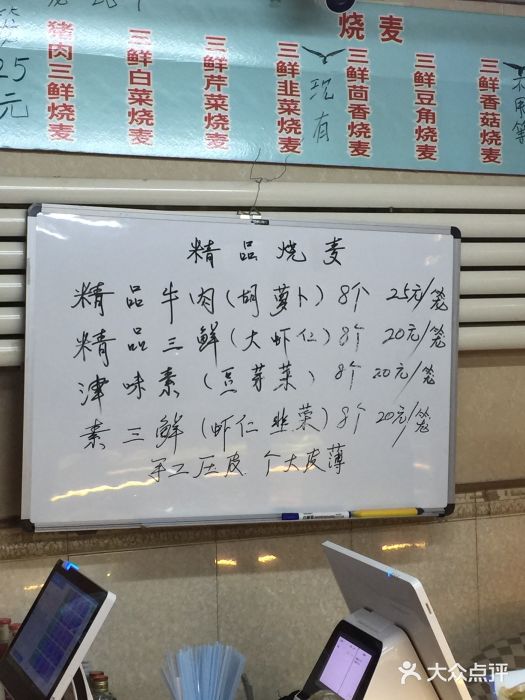 烧麦
25元
猪肉三鲜烧麦
三鲜白菜烧麦
三鲜芹菜烧麦
三鲜韭菜烧麦
现有
三鲜茴香烧麦
三鲜豆角烧麦
三鲜香菇烧麦
不用等
精品烧麦
精品牛肉(胡萝卜)8个 25元/笼
精品三鲜(大虾仁)8个 20元/笼
津味素(豆芽菜)8个 20元/笼
素三鲜(虾仁韭菜)8个 20元/笼
手工压皮 个大皮薄
大众点评